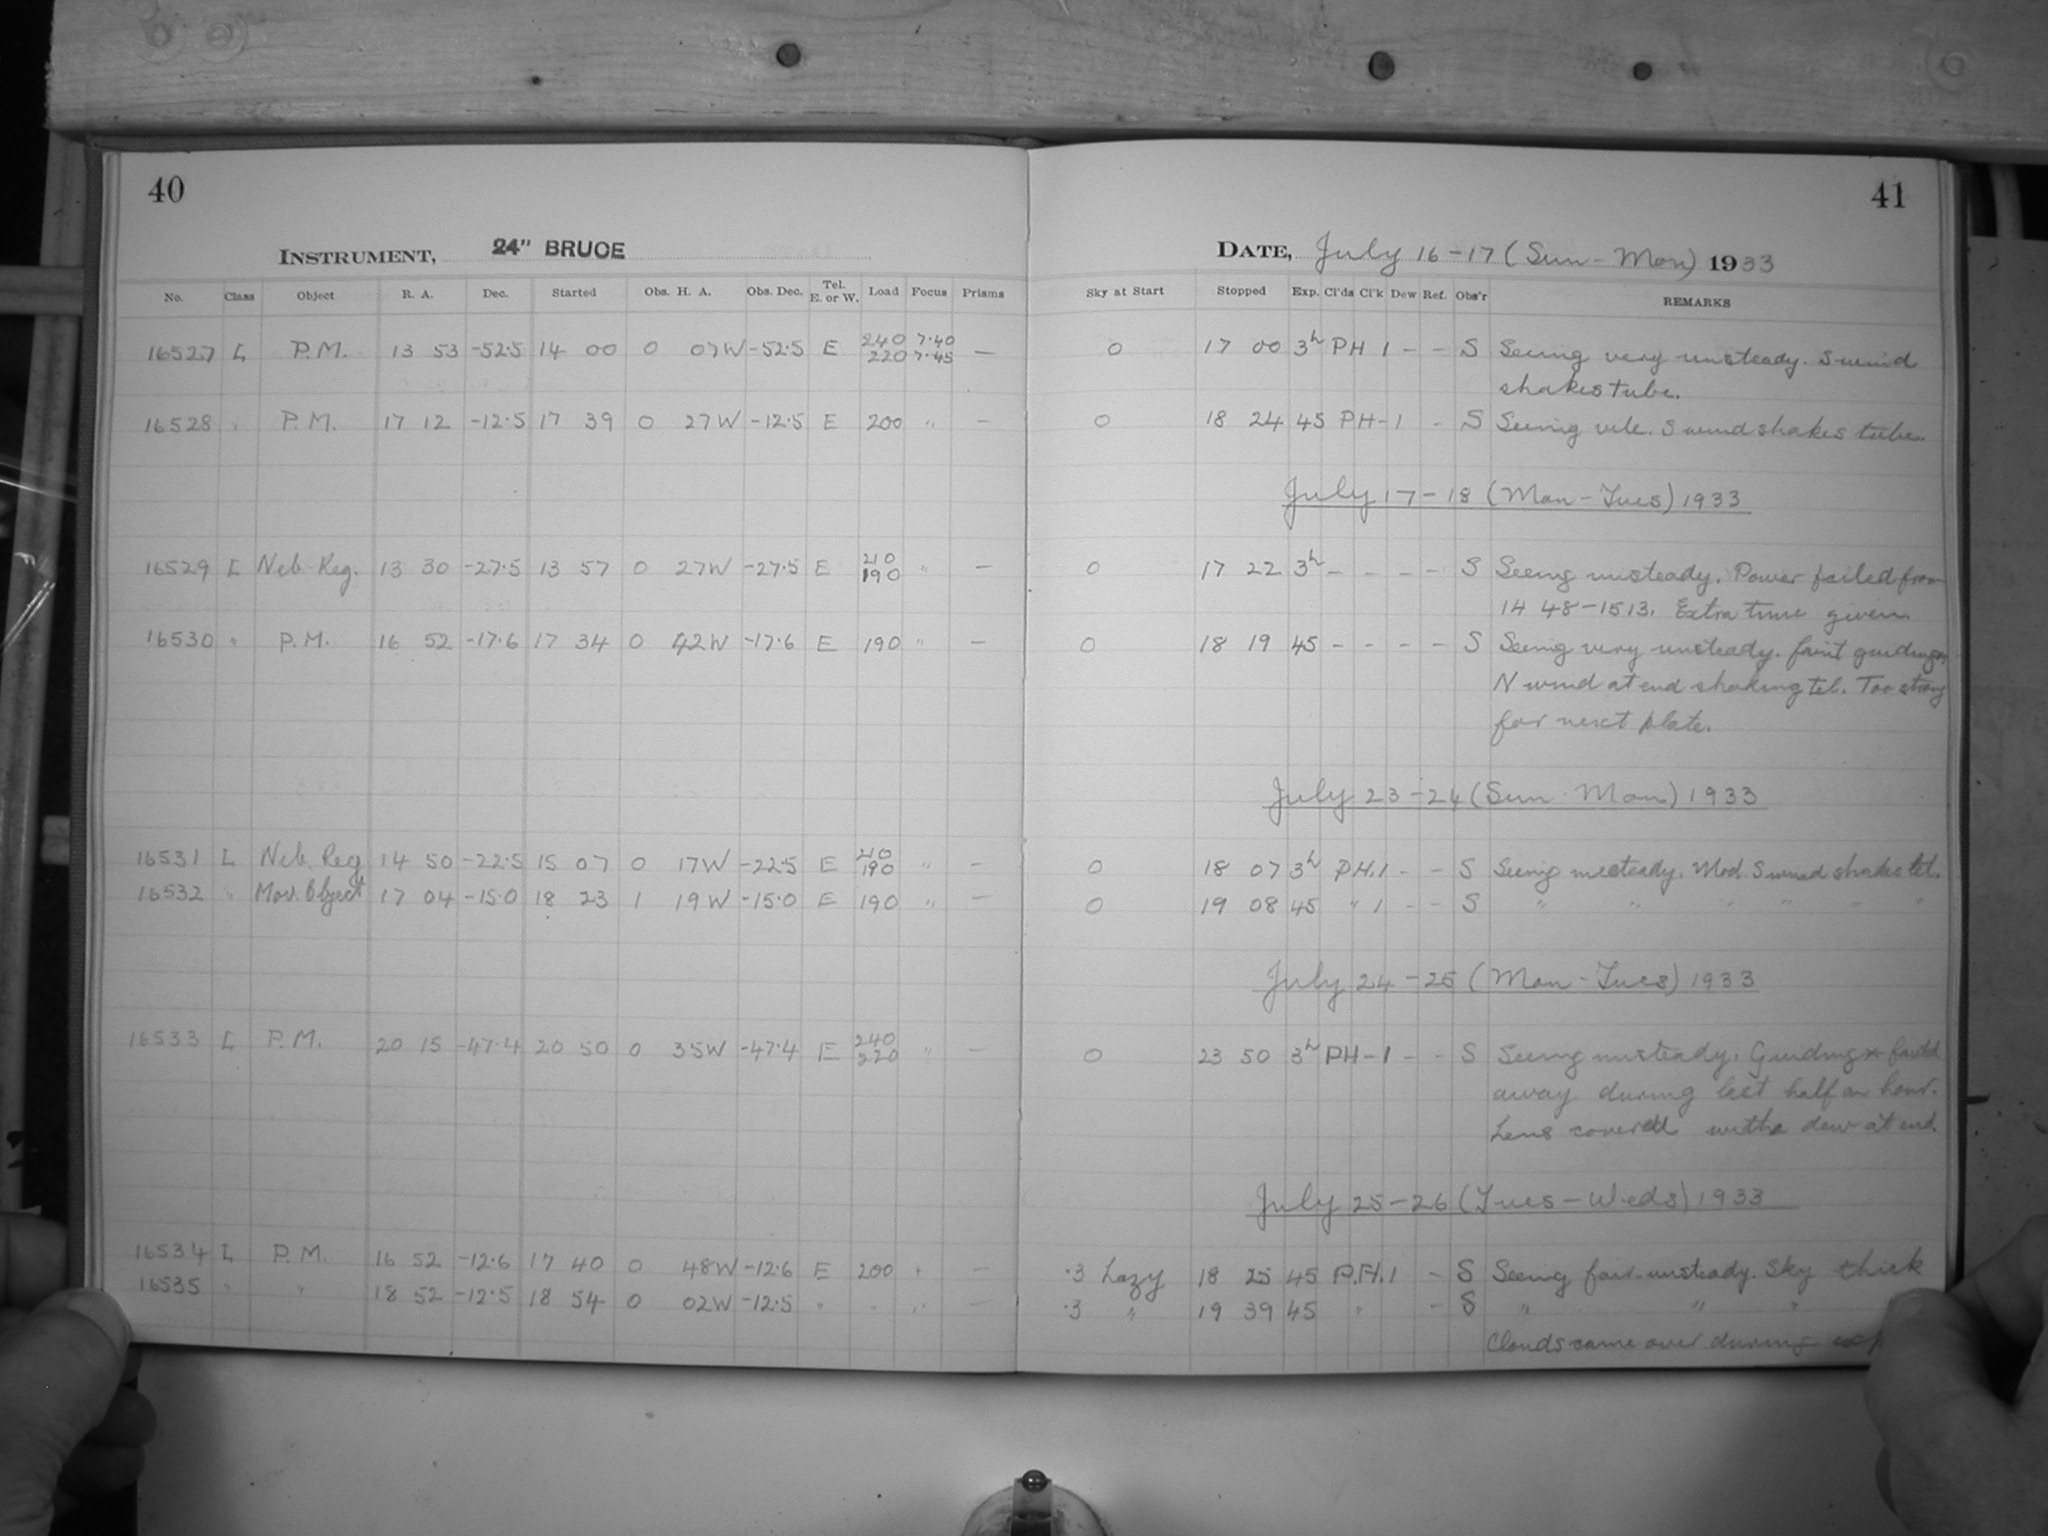 40
41
INSTRUMENT, 24" BRUCE
DATE, July 16-17 (Sun-Mon) 1933
No. Class Object R. A. Dec. Started Obs. H. A. Obs. Dec. Tel. E. or W. Load Focus Prisms Sky at Start Stopped Exp. Cl'ds Cl'k Dew Ref. Obs'r REMARKS
16527 L P.M. 13 53 -52.5 14 00 0 07W -52.5 E 240 220 7.40 7.45 — 0 17 00 3h PH 1 - - S Seeing very unsteady. S wind
shakes tube.
16528 " P.M. 17 12 -12.5 17 39 0 27W -12.5 E 200 " — 0 18 24 45 PH-1 - S Seeing vile. S wind shakes tube.
July 17-18 (Mon-Tues) 1933
16529 L Neb. Reg. 13 30 -27.5 13 57 0 27W -27.5 E 210 190 " — 0 17 22 3h - - - - S Seeing unsteady. Power failed from
14 48-1513. Extra time given.
16530 " P.M. 16 52 -17.6 17 34 0 42W -17.6 E 190 " — 0 18 19 45 - - - - S Seeing very unsteady. faint guiding
N wind at end shaking tel. Too strong
for next plate.
July 23-24 (Sun-Mon) 1933
16531 L Neb. Reg 14 50 -22.5 15 07 0 17W -22.5 E 210 190 " — 0 18 07 3h PH.1 - - S Seeing unsteady. Mod. S wind shakes tel.
16532 " Mov. Object 17 04 -15.0 18 23 1 19W -15.0 E 190 " — 0 19 08 45 " 1 - - S " " " " " "
July 24-25 (Mon-Tues) 1933
16533 L P.M. 20 15 -47.4 20 50 0 35W -47.4 E 240 220 " — 0 23 50 3h PH-1 - - S Seeing unsteady. Guiding * faded
away during last half an hour.
Lens covered with dew at end
July 25-26 (Tues-Weds) 1933
16534 L P.M. 16 52 -12.6 17 40 0 48W -12.6 E 200 " — .3 hazy 18 25 45 P.H.1 - S Seeing fair-unsteady. Sky thick
16535 " " 18 52 -12.5 18 54 0 02W -12.5 " " " — .3 " 19 39 45 " - S " " "
Clouds came over during